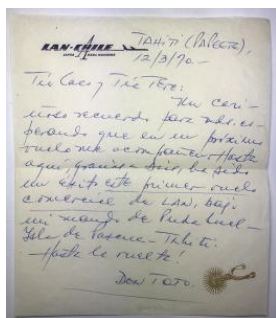 LAN-CHILE
TAHITI (Papeete),
12/3/70.-
Tío Caco y Tía Tere:
Un cari-
ñoso recuerdo para Uds. es-
perando que en un próximo
vuelo me acompañen. Hasta
aquí, gracias a Dios, ha sido
un éxito este primer vuelo
comercial de LAN, bajo
mi mando de Pudahuel-
Isla de Pascua-Tahiti.
Hasta la vuelta!
Don Tato.